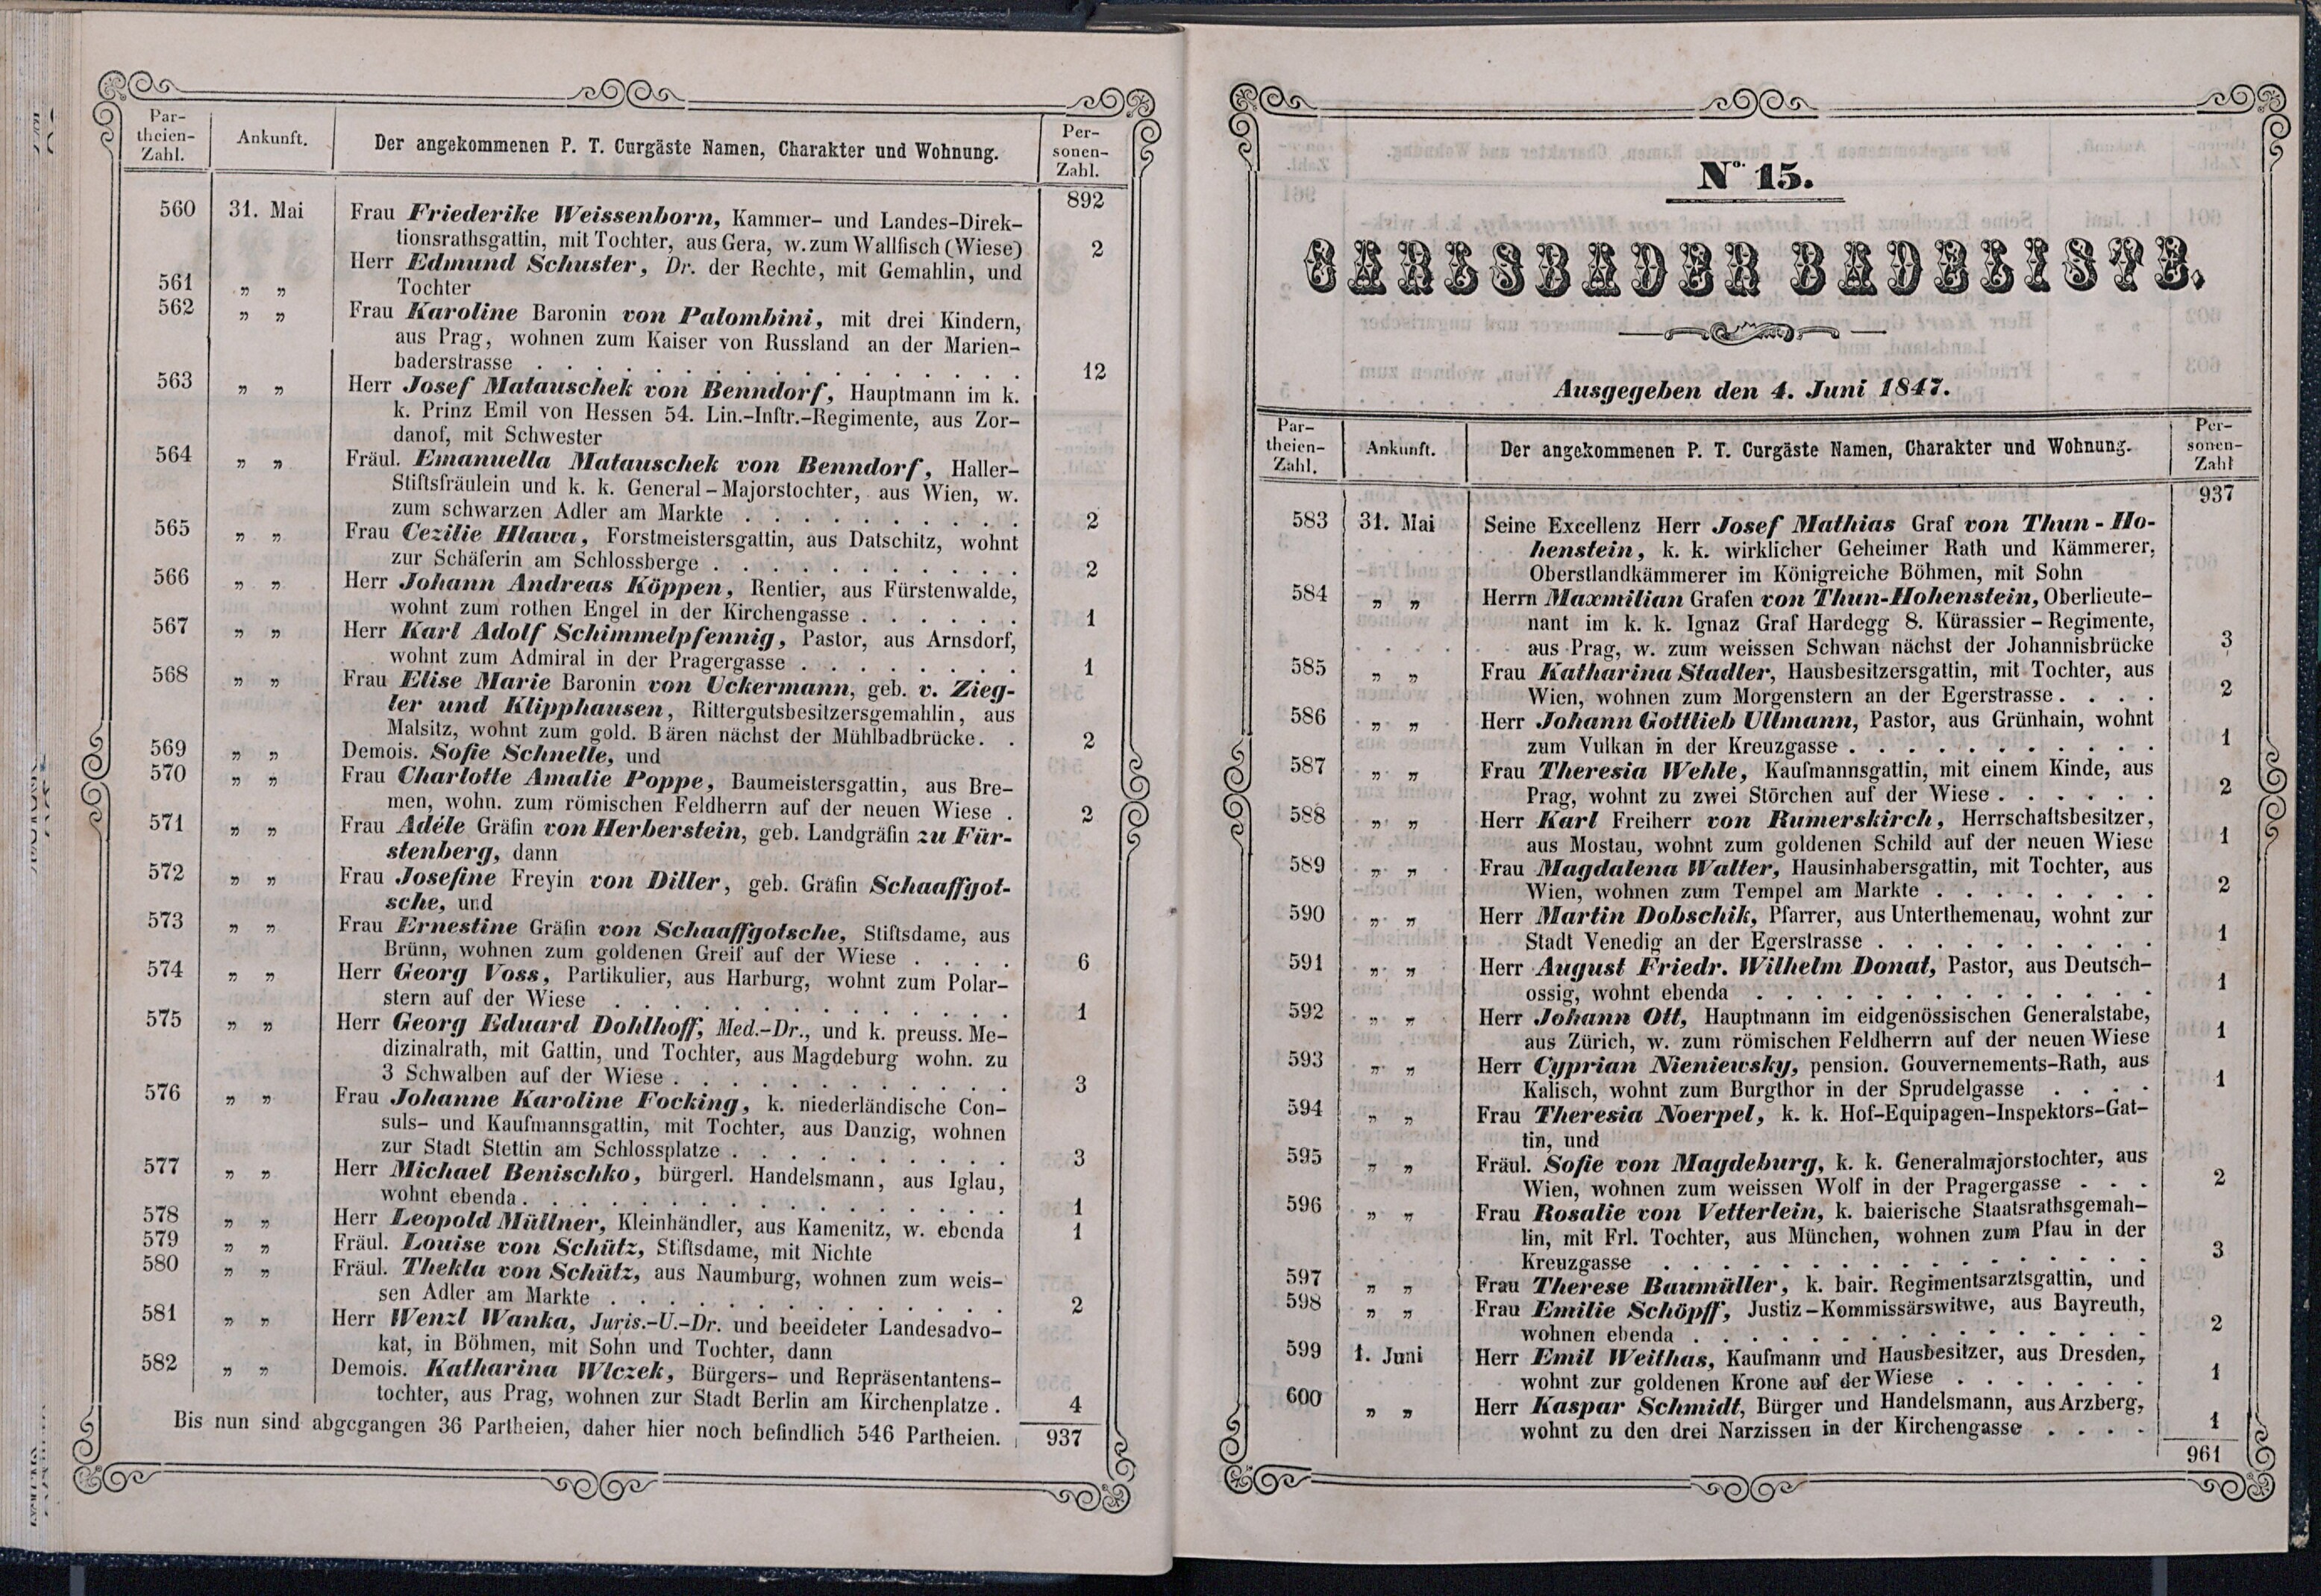 Par-
theien-
Zahl.
Ankunft.
Der angekommenen P. T. Curgäste Namen, Charakter und Wohnung.
Per-
sonen-
Zahl.
892
560 31. Mai Frau Friederike Weissenborn, Kammer- und Landes-Direk-
tionsrathsgattin, mit Tochter, aus Gera, w. zum Wallfisch (Wiese) 2
Herr Edmund Schuster, Dr. der Rechte, mit Gemahlin, und
561 „ „ Tochter
562 „ „ Frau Karoline Baronin von Palombini, mit drei Kindern,
aus Prag, wohnen zum Kaiser von Russland an der Marien-
baderstrasse . . . . . . . . . . . . . 12
563 „ „ Herr Josef Matauschek von Benndorf, Hauptmann im k.
k. Prinz Emil von Hessen 54. Lin.-Inftr.-Regimente, aus Zor-
danof, mit Schwester
564 „ „ Fräul. Emanuella Matauschek von Benndorf, Haller-
Stiftsfräulein und k. k. General-Majorstochter, aus Wien, w.
zum schwarzen Adler am Markte . . . . . . . . . . 2
565 „ „ Frau Cezilie Hlawa, Forstmeistersgattin, aus Datschitz, wohnt
zur Schäferin am Schlossberge . . . . . . . . . . . 2
566 „ „ Herr Johann Andreas Köppen, Rentier, aus Fürstenwalde,
wohnt zum rothen Engel in der Kirchengasse . . . . . . 1
567 „ „ Herr Karl Adolf Schimmelpfennig, Pastor, aus Arnsdorf,
wohnt zum Admiral in der Pragergasse . . . . . . . . 1
568 „ „ Frau Elise Marie Baronin von Uckermann, geb. v. Zieg-
ler und Klipphausen, Rittergutsbesitzersgemahlin, aus
Malsitz, wohnt zum gold. Bären nächst der Mühlbadbrücke. . 2
569 „ „ Demois. Sofie Schnelle, und
570 „ „ Frau Charlotte Amalie Poppe, Baumeistersgattin, aus Bre-
men, wohn. zum römischen Feldherrn auf der neuen Wiese . 2
571 „ „ Frau Adéle Gräfin von Herberstein, geb. Landgräfin zu Für-
stenberg, dann
572 „ „ Frau Josefine Freyin von Diller, geb. Gräfin Schaaffgot-
sche, und
573 „ „ Frau Ernestine Gräfin von Schaaffgotsche, Stiftsdame, aus
Brünn, wohnen zum goldenen Greif auf der Wiese . . . . 6
574 „ „ Herr Georg Voss, Partikulier, aus Harburg, wohnt zum Polar-
stern auf der Wiese . . . . . . . . . . . . . 1
575 „ „ Herr Georg Eduard Dohlhoff, Med.-Dr., und k. preuss. Me-
dizinalrath, mit Gattin, und Tochter, aus Magdeburg wohn. zu
3 Schwalben auf der Wiese . . . . . . . . . . . . 3
576 „ „ Frau Johanne Karoline Focking, k. niederländische Con-
suls- und Kaufmannsgattin, mit Tochter, aus Danzig, wohnen
zur Stadt Stettin am Schlossplatze . . . . . . . . . . 3
577 „ „ Herr Michael Benischko, bürgerl. Handelsmann, aus Iglau,
wohnt ebenda . . . . . . . . . . . . . . . . 1
578 „ „ Herr Leopold Müllner, Kleinhändler, aus Kamenitz, w. ebenda 1
579 „ „ Fräul. Louise von Schütz, Stiftsdame, mit Nichte
580 „ „ Fräul. Thekla von Schütz, aus Naumburg, wohnen zum weis-
sen Adler am Markte . . . . . . . . . . . . . . 2
581 „ „ Herr Wenzl Wanka, Juris.-U.-Dr. und beeideter Landesadvo-
kat, in Böhmen, mit Sohn und Tochter, dann
582 „ „ Demois. Katharina Wlczek, Bürgers- und Repräsentantens-
tochter, aus Prag, wohnen zur Stadt Berlin am Kirchenplatze . 4
Bis nun sind abgegangen 36 Partheien, daher hier noch befindlich 546 Partheien. 937
No. 15.
CARLSBADER BADELISTE.
Ausgegeben den 4. Juni 1847.
Par-
theien-
Zahl.
Ankunft.
Der angekommenen P. T. Curgäste Namen, Charakter und Wohnung.
Per-
sonen-
Zahl
937
583 31. Mai Seine Excellenz Herr Josef Mathias Graf von Thun-Ho-
henstein, k. k. wirklicher Geheimer Rath und Kämmerer,
Oberstlandkämmerer im Königreiche Böhmen, mit Sohn
584 „ „ Herrn Maxmilian Grafen von Thun-Hohenstein, Oberlieute-
nant im k. k. Ignaz Graf Hardegg 8. Kürassier-Regimente,
aus Prag, w. zum weissen Schwan nächst der Johannisbrücke 3
585 „ „ Frau Katharina Stadler, Hausbesitzersgattin, mit Tochter, aus
Wien, wohnen zum Morgenstern an der Egerstrasse . . . . 2
586 „ „ Herr Johann Gottlieb Ullmann, Pastor, aus Grünhain, wohnt
zum Vulkan in der Kreuzgasse . . . . . . . . . . . 1
587 „ „ Frau Theresia Wehle, Kaufmannsgattin, mit einem Kinde, aus
Prag, wohnt zu zwei Störchen auf der Wiese . . . . . . 2
588 „ „ Herr Karl Freiherr von Rumerskirch, Herrschaftsbesitzer,
aus Mostau, wohnt zum goldenen Schild auf der neuen Wiese 1
589 „ „ Frau Magdalena Walter, Hausinhabersgattin, mit Tochter, aus
Wien, wohnen zum Tempel am Markte . . . . . . . . 2
590 „ „ Herr Martin Dobschik, Pfarrer, aus Unterthemenau, wohnt zur
Stadt Venedig an der Egerstrasse . . . . . . . . . . 1
591 „ „ Herr August Friedr. Wilhelm Donat, Pastor, aus Deutsch-
ossig, wohnt ebenda . . . . . . . . . . . . . . 1
592 „ „ Herr Johann Ott, Hauptmann im eidgenössischen Generalstabe,
aus Zürich, w. zum römischen Feldherrn auf der neuen Wiese 1
593 „ „ Herr Cyprian Nieniewsky, pension. Gouvernements-Rath, aus
Kalisch, wohnt zum Burgthor in der Sprudelgasse . . . . 1
594 „ „ Frau Theresia Noerpel, k. k. Hof-Equipagen-Inspektors-Gat-
tin, und
595 „ „ Fräul. Sofie von Magdeburg, k. k. Generalmajorstochter, aus
Wien, wohnen zum weissen Wolf in der Pragergasse . . . 2
596 „ „ Frau Rosalie von Vetterlein, k. baierische Staatsrathsgemah-
lin, mit Frl. Tochter, aus München, wohnen zum Pfau in der
Kreuzgasse . . . . . . . . . . . . . . . . 3
597 „ „ Frau Therese Baumüller, k. bair. Regimentsarztsgattin, und
598 „ „ Frau Emilie Schöpff, Justiz-Kommissärswitwe, aus Bayreuth,
wohnen ebenda . . . . . . . . . . . . . . . . 2
599 1. Juni Herr Emil Weithas, Kaufmann und Hausbesitzer, aus Dresden,
wohnt zur goldenen Krone auf der Wiese . . . . . . . 1
600 „ „ Herr Kaspar Schmidt, Bürger und Handelsmann, aus Arzberg,
wohnt zu den drei Narzissen in der Kirchengasse . . . . 1
961